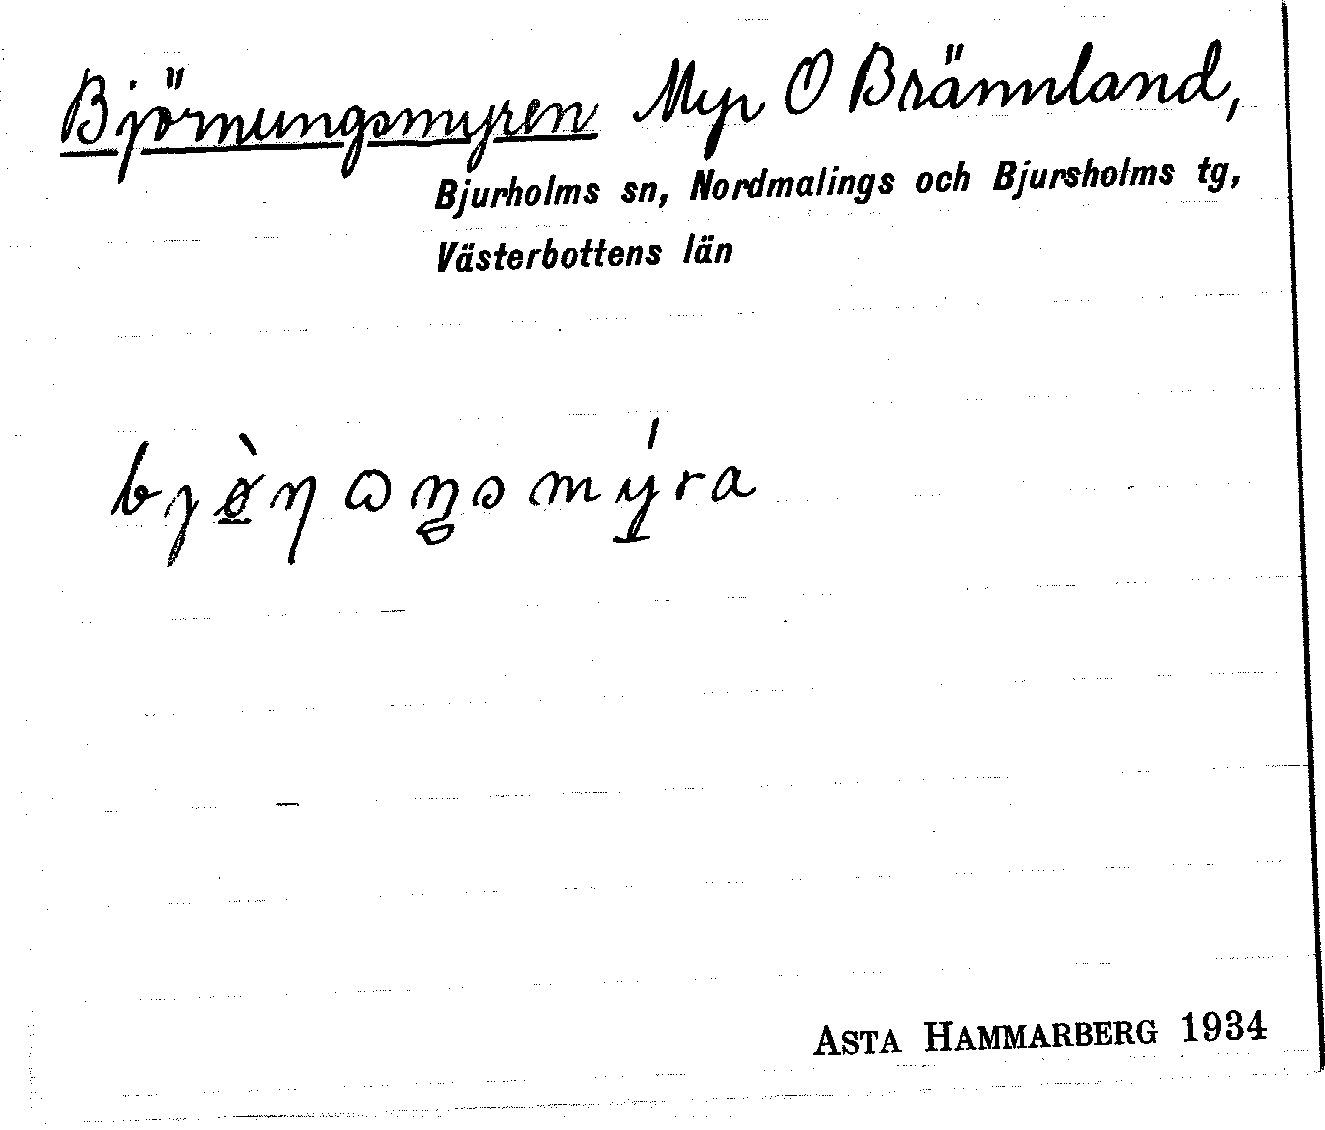 Björnungsmyren Myr O Brännland,
Bjurholms sn, Nordmalings och Bjursholms tg,
Västerbottens län
bjø̲̀ηωŋsmý̲ra
ASTA HAMMARBERG 1934